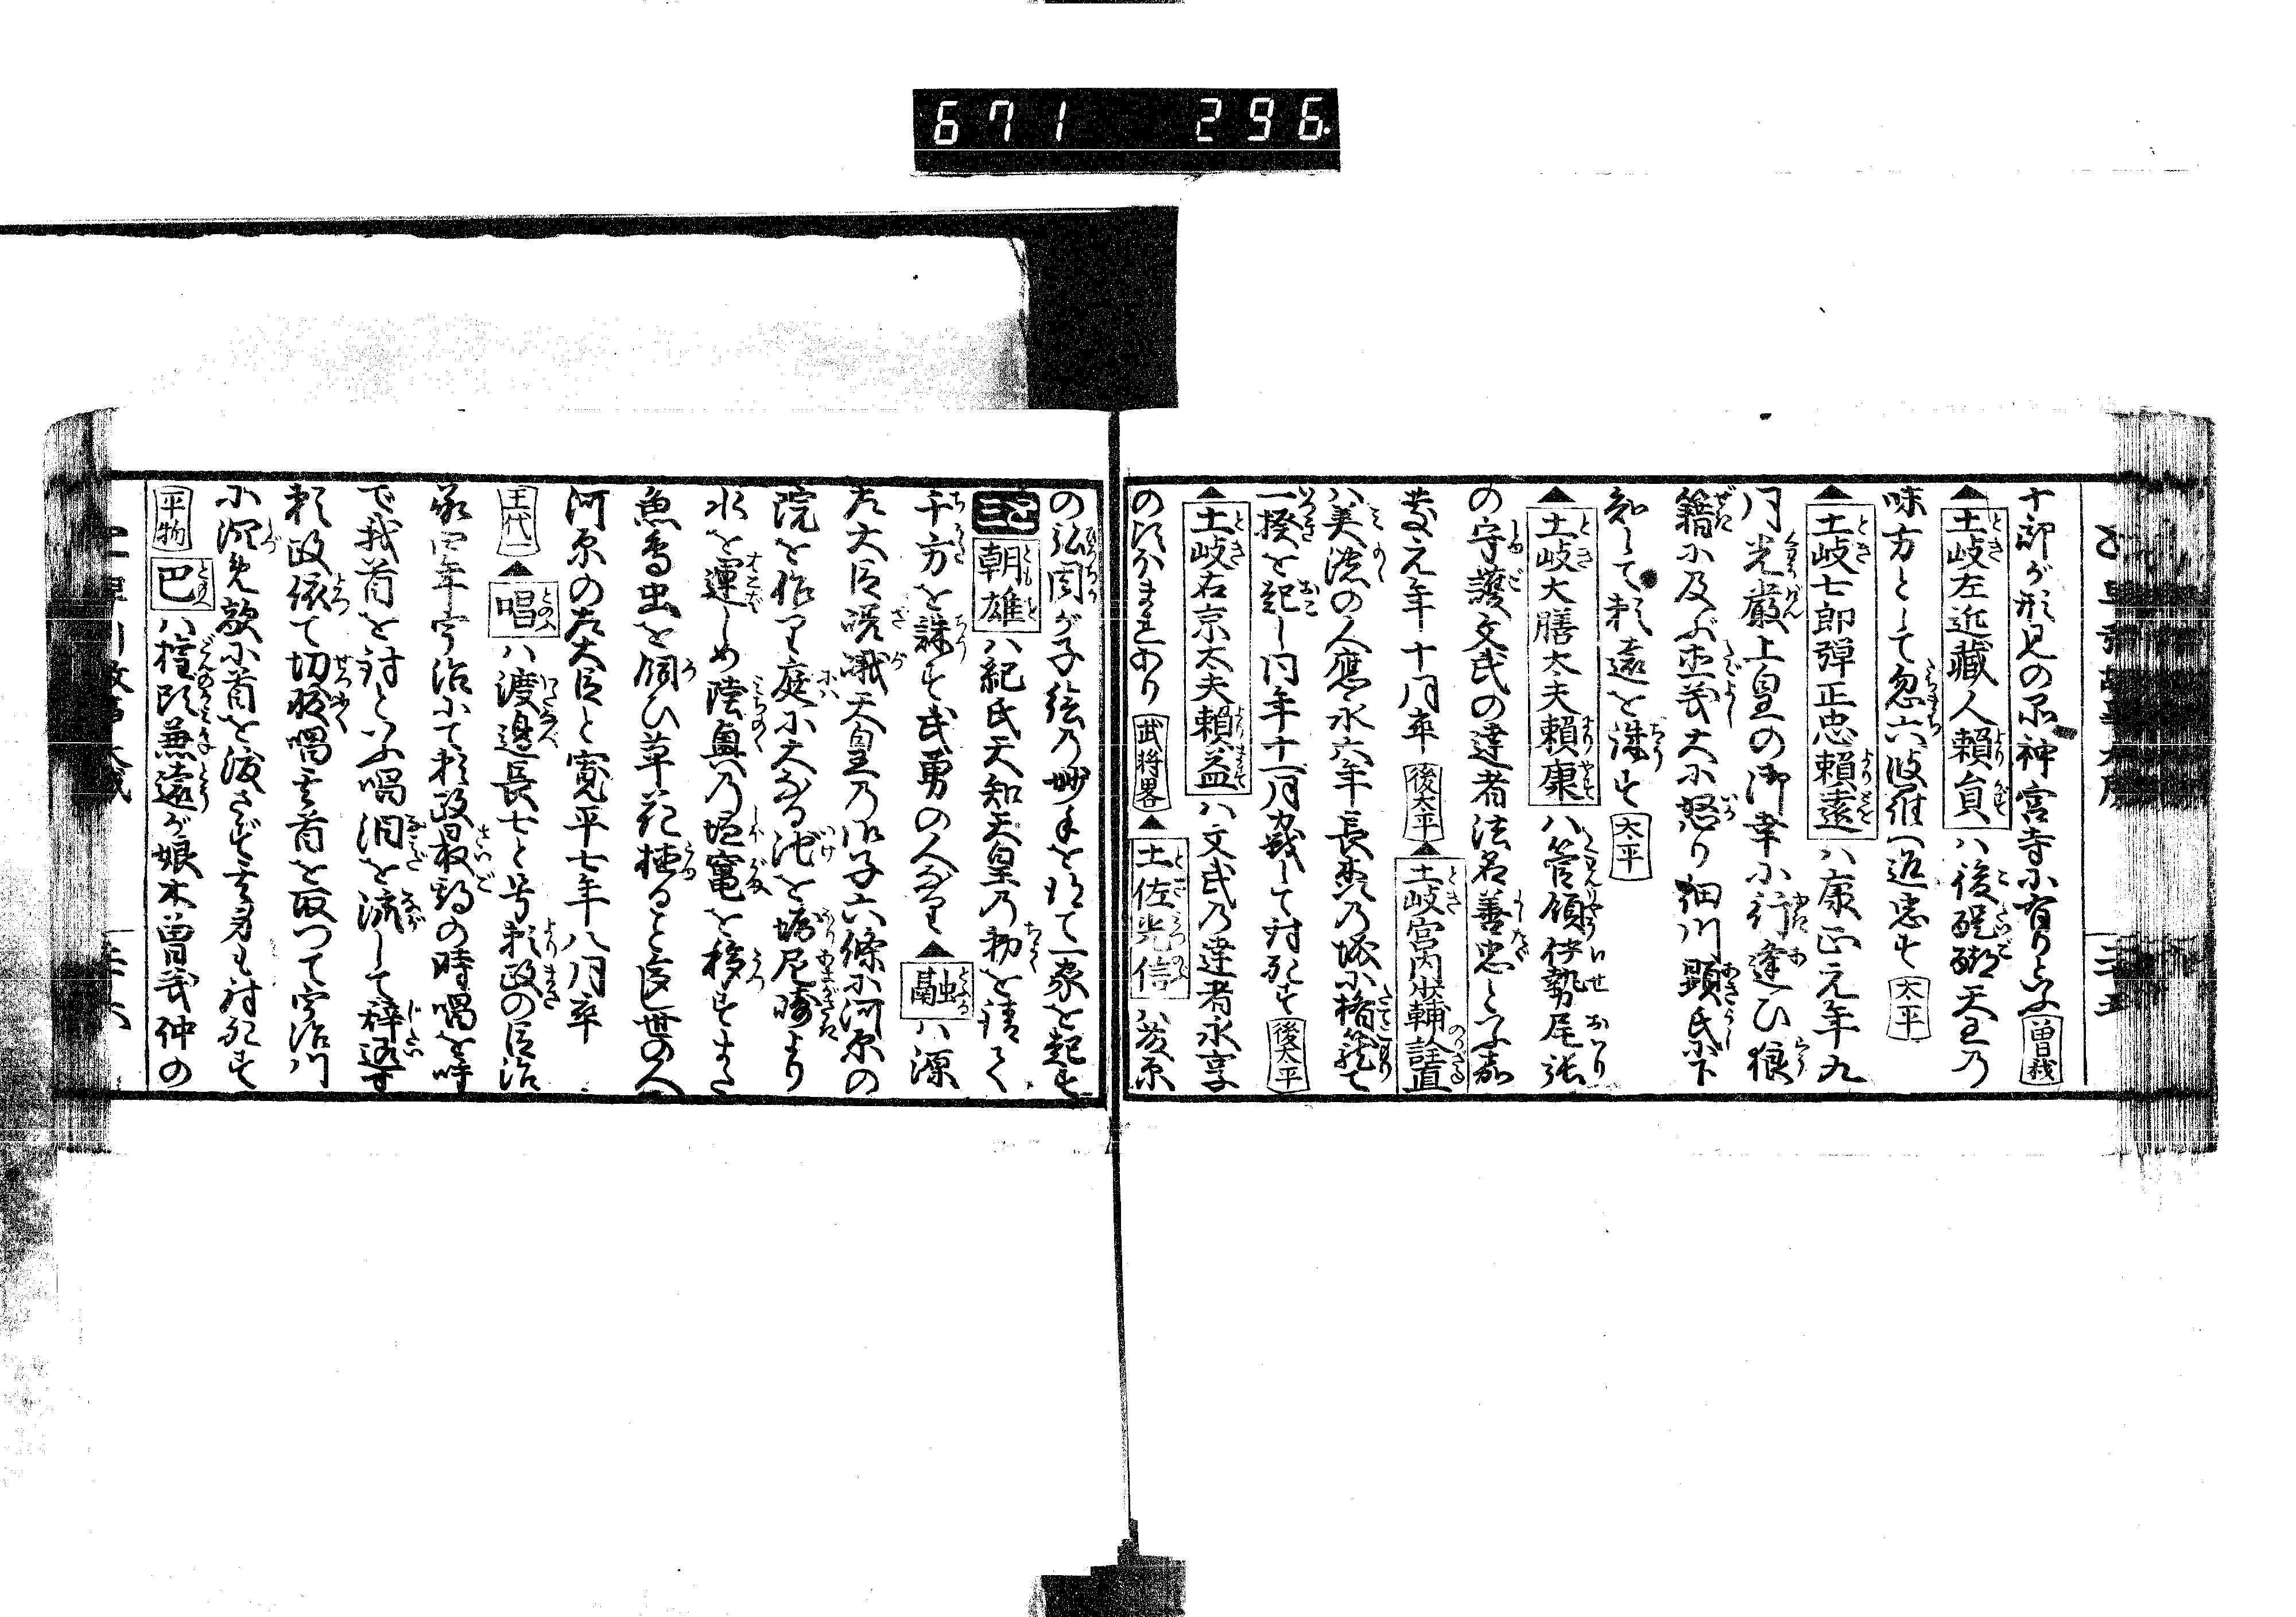 671 296
十郎が形見の品神宮寺に有りといふ 曽我
▲土岐左近蔵人頼貞ハ後醍醐天王の
味方として忽六波羅へ返忠す 太平
▲土岐七郎弾正忠頼遠ハ康正元年九
月光厳上皇の御幸に行逢ひ狼
籍に及ぶ直義大に怒り細川顕氏に下
知して頼遠を誅す 太平
▲土岐大膳太夫頼康ハ管領伊勢尾張
の守護文武の達者法名善忠といふ嘉
慶元年十月卒 後太平 ▲土岐宮内少輔詮直
ハ美濃の人應永六年長森の城に楯篭て
一揆を起し同年十一月力戦して討死す 後太平
▲土岐右京太夫頼益ハ文武の達者永享
の頃ほまれあり 武将畧 ▲土佐光信ハ藤原
の弘周が子絵の妙手を得て一家を起す
朝雄ハ紀氏天知天皇の勅を請て
千方を誅す武勇の人なり ▲融ハ源
左大臣嵯峨天皇の御子六條に河原の
院を作り庭に大なる池を堀尼崎より
水を運しめ陸奥の塩竃を移すまた
魚鳥虫を飼ひ草花植ると良世の人
河原の左大臣と寛平七年八月卒
王代一 ▲唱ハ渡邊長七と号頼政の臣治
承四年宇治にて頼政最期の時唱を呼
で我首を討といふ唱泪を流して辞退す
頼政依て切腹唱其首を取つて宇治川
に沉め敵に首を渡さず其身も討死す
平物 巴ハ権頭兼遠が娘木曽義仲の